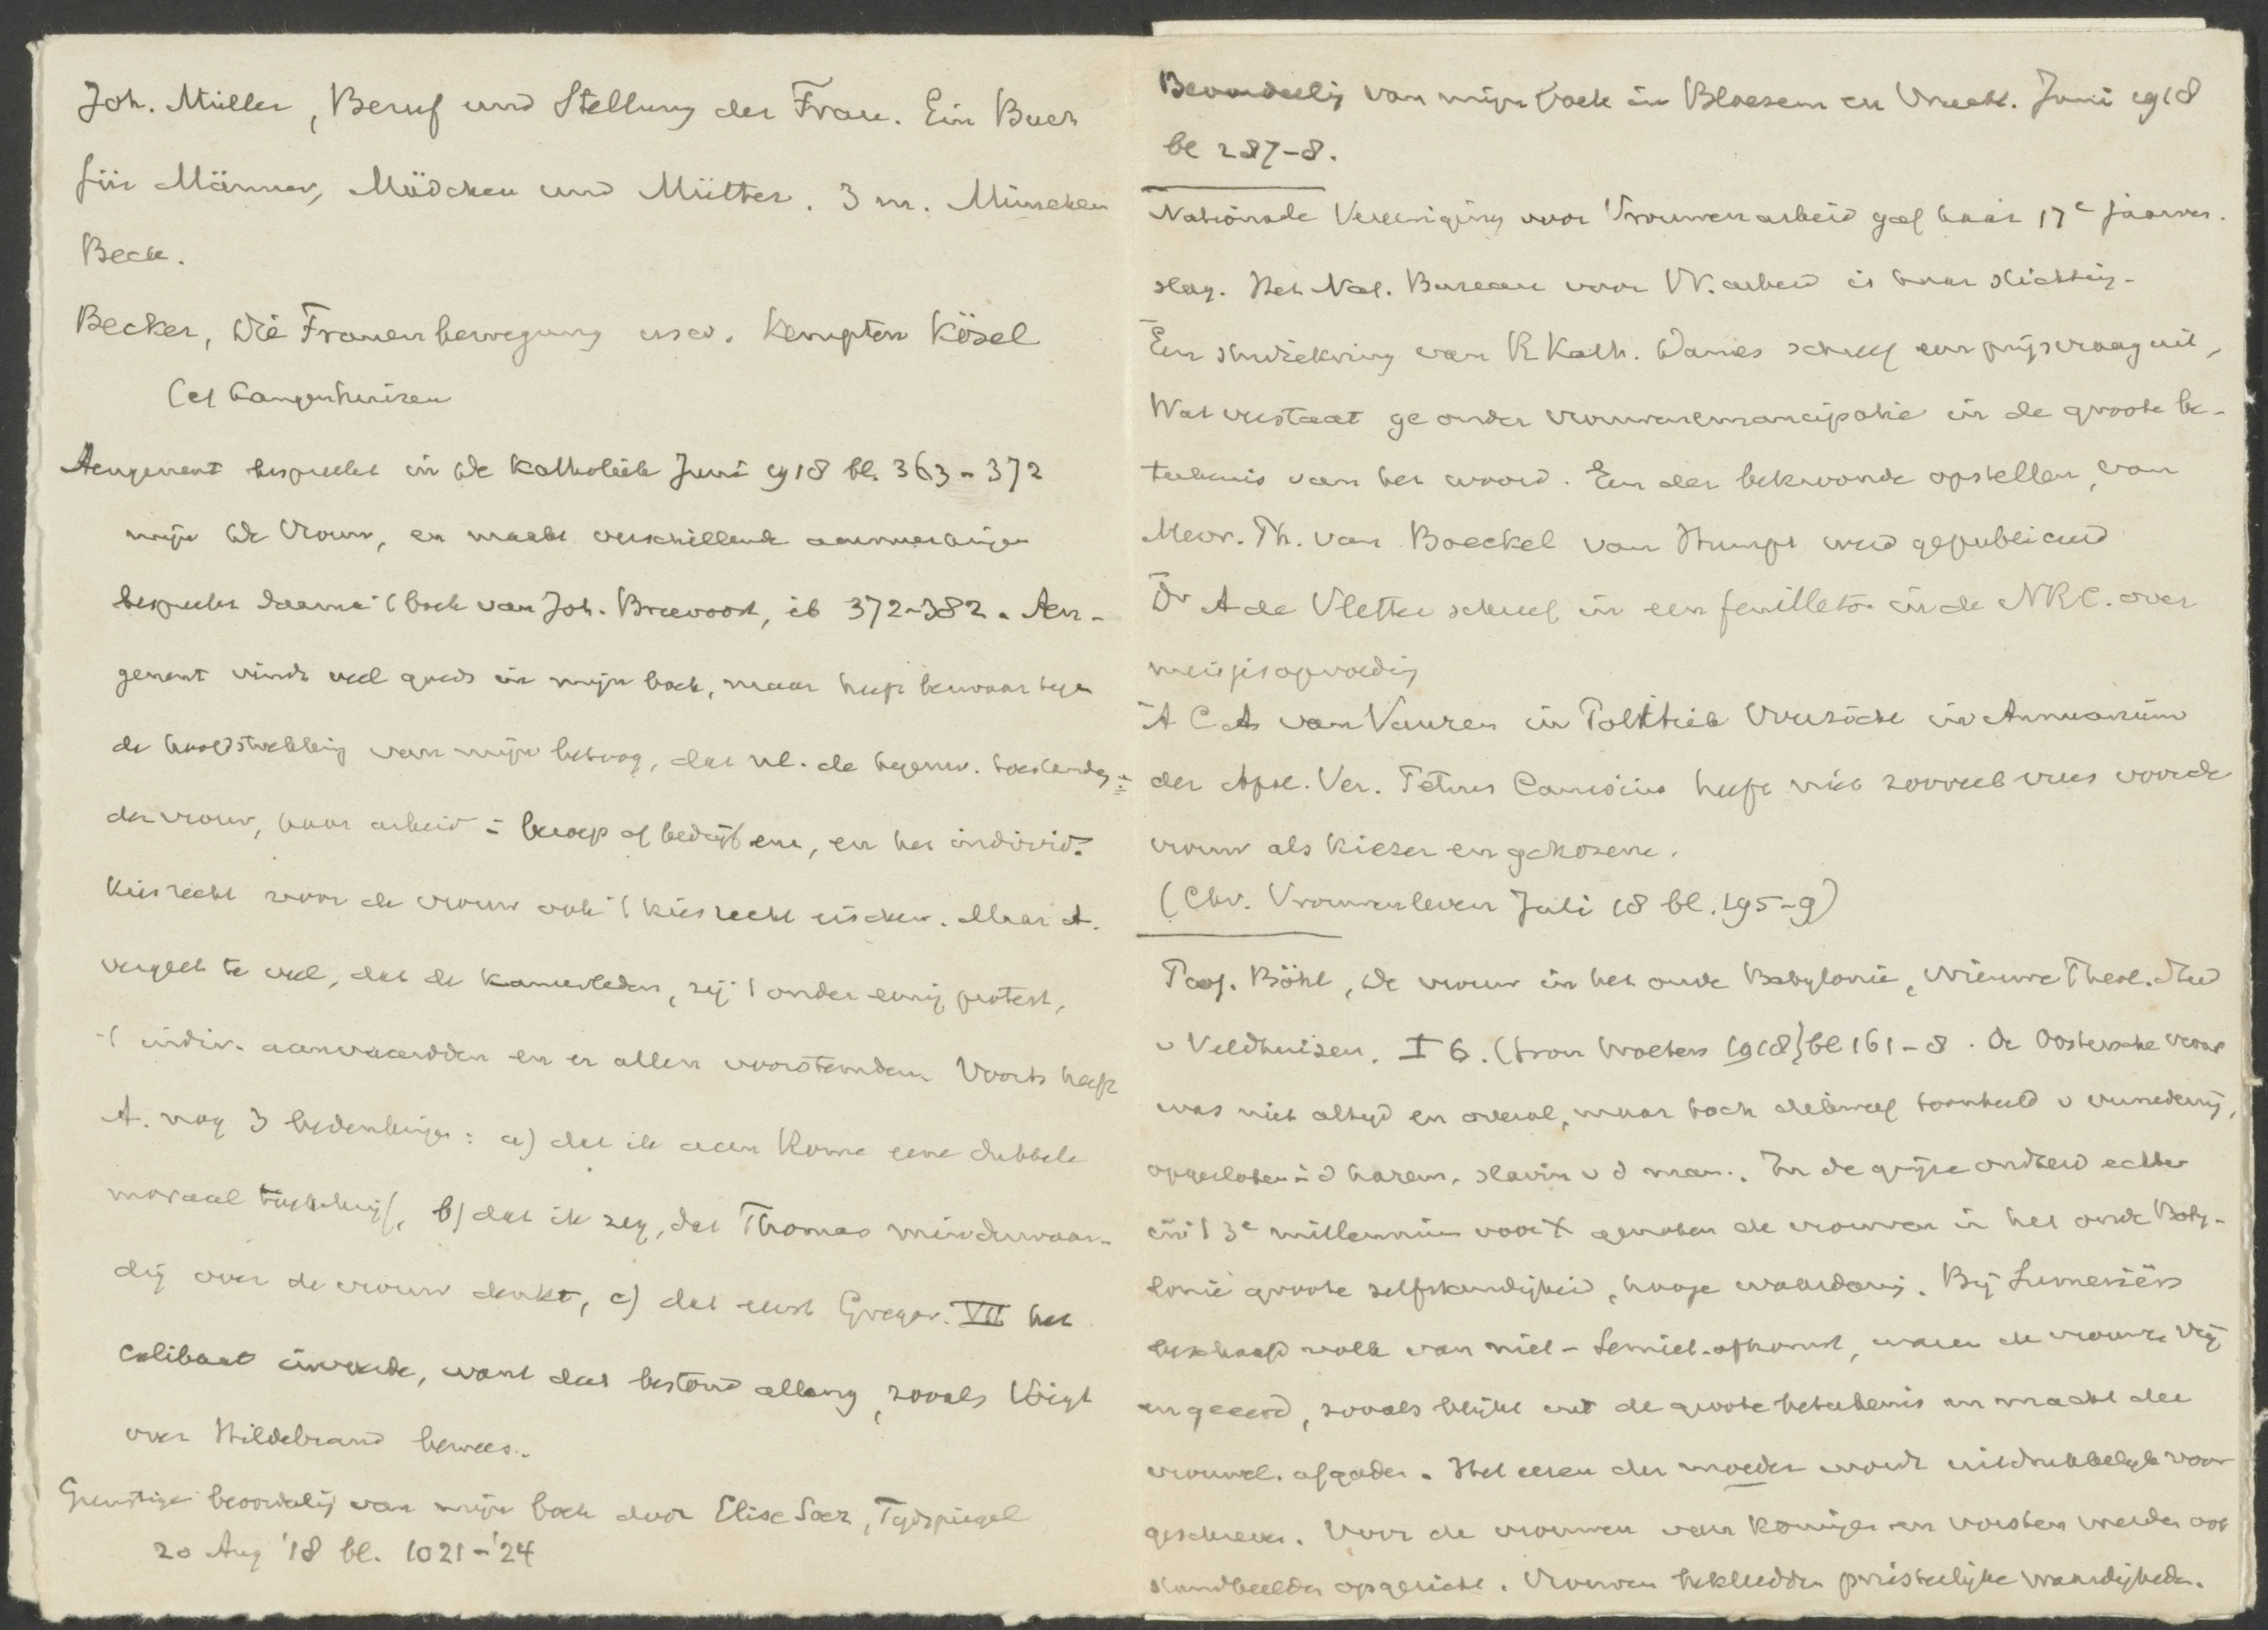 Joh. Müller, Beruf und Stellung der Frau. Ein Buch
für Männer, Mädchen und Mütter. 3 m. München
Beck.
Becker, Die Frauenbewegung usw. Kempten Kösel
(cf Langenhuizen
Aengenent bespreekt in de Katholiek Juni 1918 bl. 363-372
mijn de Vrouw, en maakt verschillende aanmerkingen
bespreekt daarna 't boek van Joh. Breevoort, ib 372-382. Aen-
genent vindt veel goeds in mijn boek, maar heeft bezwaar tegen
de hoofdstrekking van mijn betoog, dat nl. de tegenw. toestanden
der vrouw, haar arbeid in beroep of bedrijf enz, en het individ.
kiesrecht voor de vrouw ook 't kiesrecht eischen. Maar A.
vergeet te veel, dat de kamerleden, zij 't onder eenig protest,
't indiv. aanvaardden en er allen voorstemden. Voorts heeft
A. nog 3 bedenkingen: a) dat ik aan Rome eene dubbele
moraal toeschrijf, b) dat ik zeg, dat Thomas minderwaar-
dig over de vrouw denkt, c) dat eerst Gregor. VII het
celibaat invoerde, want dat bestond allang, zooals Voigt
over Hildebrand bewees.
Gunstige beoordeling van mijn boek door Elise Soer, Tijdspiegel
20 Aug '18 bl. 1021-'24
Beoordeling van mijn boek in Bloesem en Vrucht. Juni 1918
bl 287-8.
Nationale Vereeniging voor Vrouwenarbeid gaf haar 17e jaarver-
slag. Het Nat. Bureau voor Vr. arbeid is haar stichting.
Een studiekring van R Kath. Dames schreef een prijsvraag uit,
Wat verstaat ge onder vrouwenemancipatie in de groote be-
teekenis van het woord. Een der bekroonde opstellen, van
Mevr. Th. van Boeckel van Stumpt werd gepubliceerd
Dr A de Vletter schreef in een feuilleton in de NRC. over
meisjesopvoeding
A C A van Vuuren in Politiek Overzicht in Annuarium
der Apol. Ver. Petrus Canisius heeft niet zooveel vrees voor de
vrouw als kiezer en gekozene.
(Chr. Vrouwenleven Juli 18 bl. 195-9)
Prof. Böhl, De vrouw in het oude Babylonië, Nieuwe Theol. Stud
v Veldhuizen. I 6. (Gron Wolters 1918) bl 161-8. De Oostersche vrouw
was niet altijd en overal, maar toch dikwerf toonbeeld v vernedering,
opgesloten in d harem, slavin v d man. In de grijze oudheid echter
in 't 3e millennium voor X genoten de vrouwen in het oude Baby-
lonië groote zelfstandigheid, hooge waardering. Bij Sumeriërs
beschaafd volk van niet-Semiet. afkomst, waren de vrouwen vrij
en geëerd, zooals blijkt uit de groote beteekenis en macht der
vrouwel. afgoden. Het eeren der moeder wordt uitdrukkelijk voor
geschreven. Voor de vrouwen van koningen en vorsten werden ook
standbeelden opgericht. Vrouwen bekleedden priesterlijke waardigheden.